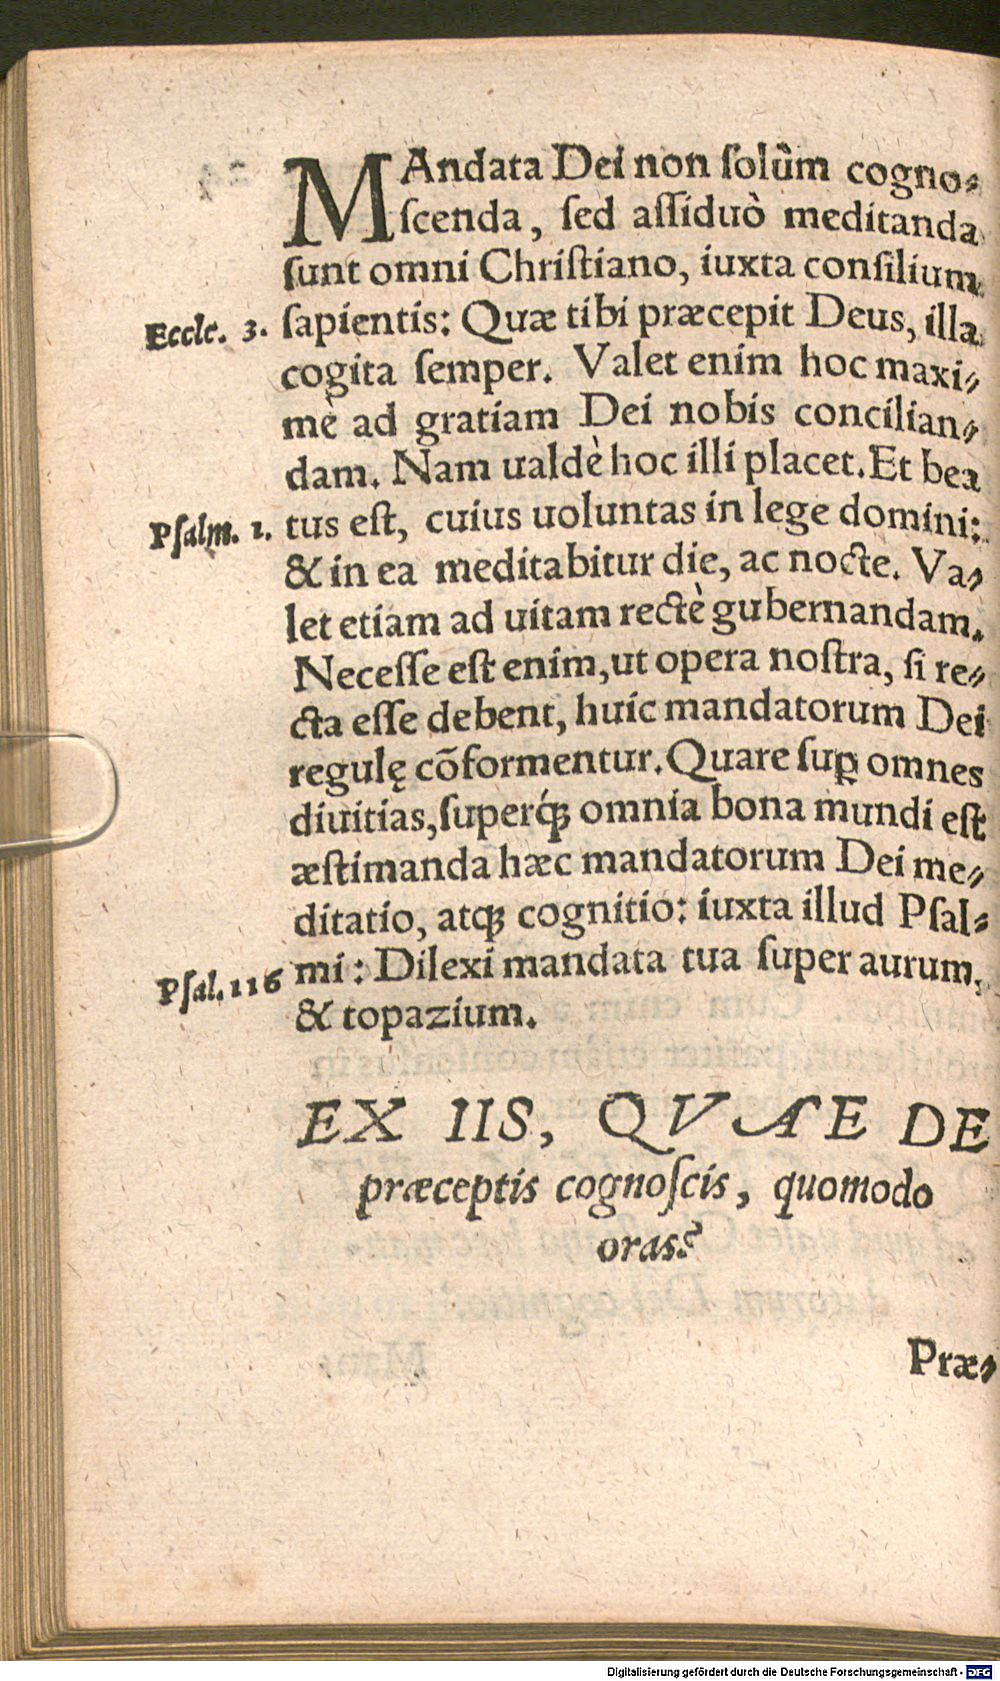 MAndata Dei non ſolùm cogno⸗
ſcenda, ſed aſſiduò meditanda
ſunt omni Chriſtiano, iuxta conſilium
Eccle. 3. ſapientis: Quæ tibi præcepit Deus, illa
cogita ſemper. Valet enim hoc maxi⸗
mè ad gratiam Dei nobis concilian⸗
dam. Nam ualdè hoc illi placet. Et bea
Pſalm. 1. tus eſt, cuius uoluntas in lege domini:
& in ea meditabitur die, ac nocte. Va⸗
let etiam ad uitam rectè gubernandam.
Neceſſe eſt enim, ut opera noſtra, ſi re⸗
cta eſſe debent, huic mandatorum Dei
regulę cõformentur. Quare ſuꝑ omnes
diuitias, ſuperq́; omnia bona mundi eſt
æſtimanda hæc mandatorum Dei me⸗
ditatio, atq; cognitio: iuxta illud Pſal⸗
Pſal. 116 mi: Dilexi mandata tua ſuper aurum,
& topazium.
EX IIS, QVAE DE
præceptis cognoſcis, quomodo
oras?
Præ⸗
Digitalisierung gefördert durch die Deutsche Forschungsgemeinschaft - DFG